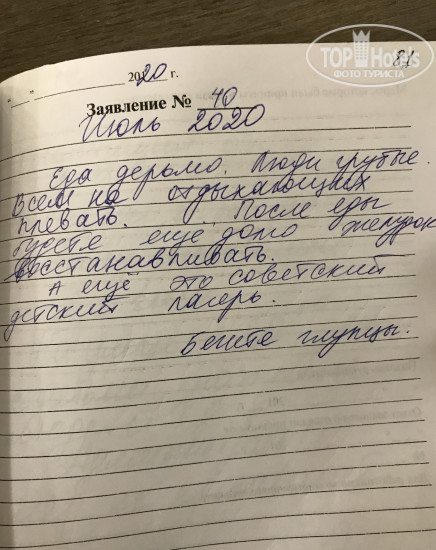 TOP Hotels
ФОТО ТУРИСТА
81
"__" ______ 2020 г.
Заявление № 40
Июль 2020
Еда дерьмо. Люди грубые.
Всем на отдыхающих
плевать. После еды
будете еще долго желудок
восстанавливать.
А ещё это советский
детский лагерь.
Бегите глупцы.